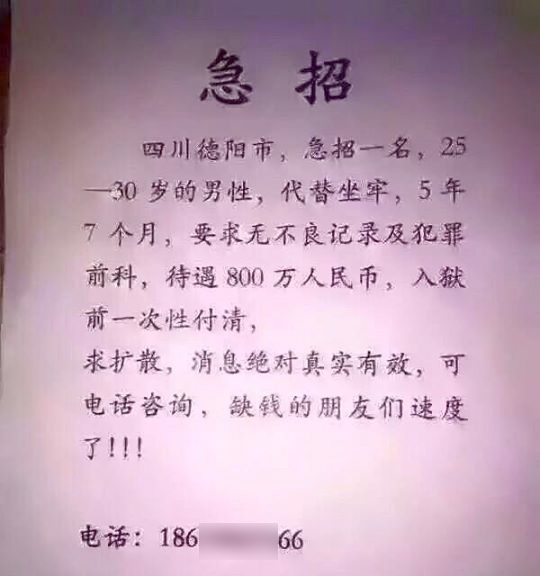 急招
四川德阳市，急招一名，25
—30 岁的男性，代替坐牢，5 年
7 个月，要求无不良记录及犯罪
前科，待遇 800 万人民币，入狱
前一次性付清，
求扩散，消息绝对真实有效，可
电话咨询，缺钱的朋友们速度
了!!!
电话：186 66